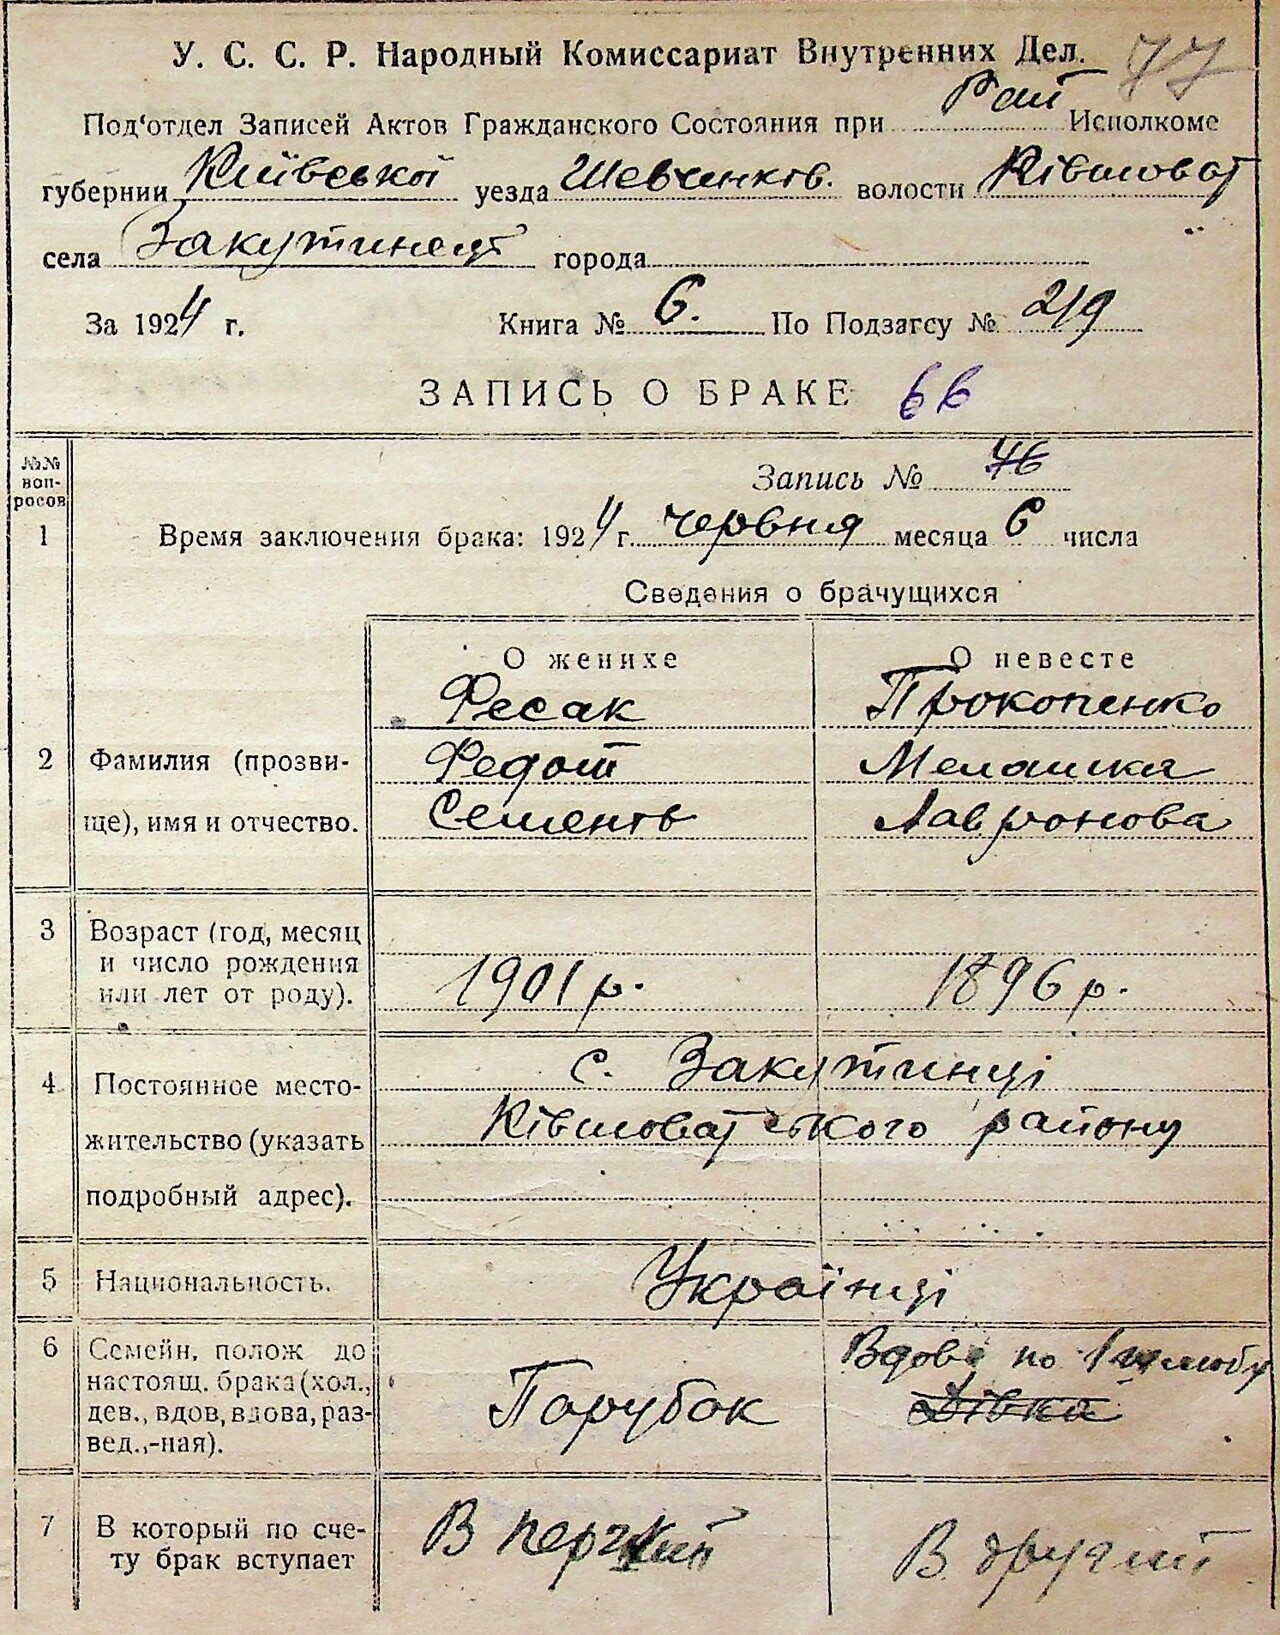 У. С. С. Р. Народный Комиссариат Внутренних Дел. 77
Под'отдел Записей Актов Гражданского Состояния при Рай Исполкоме
губернии Київської уезда Шевченків. волости Ківшоват
села Закутинец города
За 1924 г. Книга № 6. По Подзагсу № 219
ЗАПИСЬ О БРАКЕ 66
№№ воп-росов
Запись № 76
1 Время заключения брака: 1924 г. червня месяца 6 числа
Сведения о брачущихся
О женихе О невесте
Фесак Прокопенко
2 Фамилия (прозви- Федот Мелашка
ще), имя и отчество. Семенів Лавронова
3 Возраст (год, месяц
и число рождения 1901 р. 1896 р.
или лет от роду).
с. Закутинці
4 Постоянное место-
жительство (указать Ківшоватського району
подробный адрес).
5 Национальность. Українці
6 Семейн. полож до Вдова по 1 шлюбу
настоящ. брака (хол., Парубок Дівка
дев., вдов, вдова, раз-
вед.,-ная).
7 В который по сче- В перший В другий
ту брак вступает